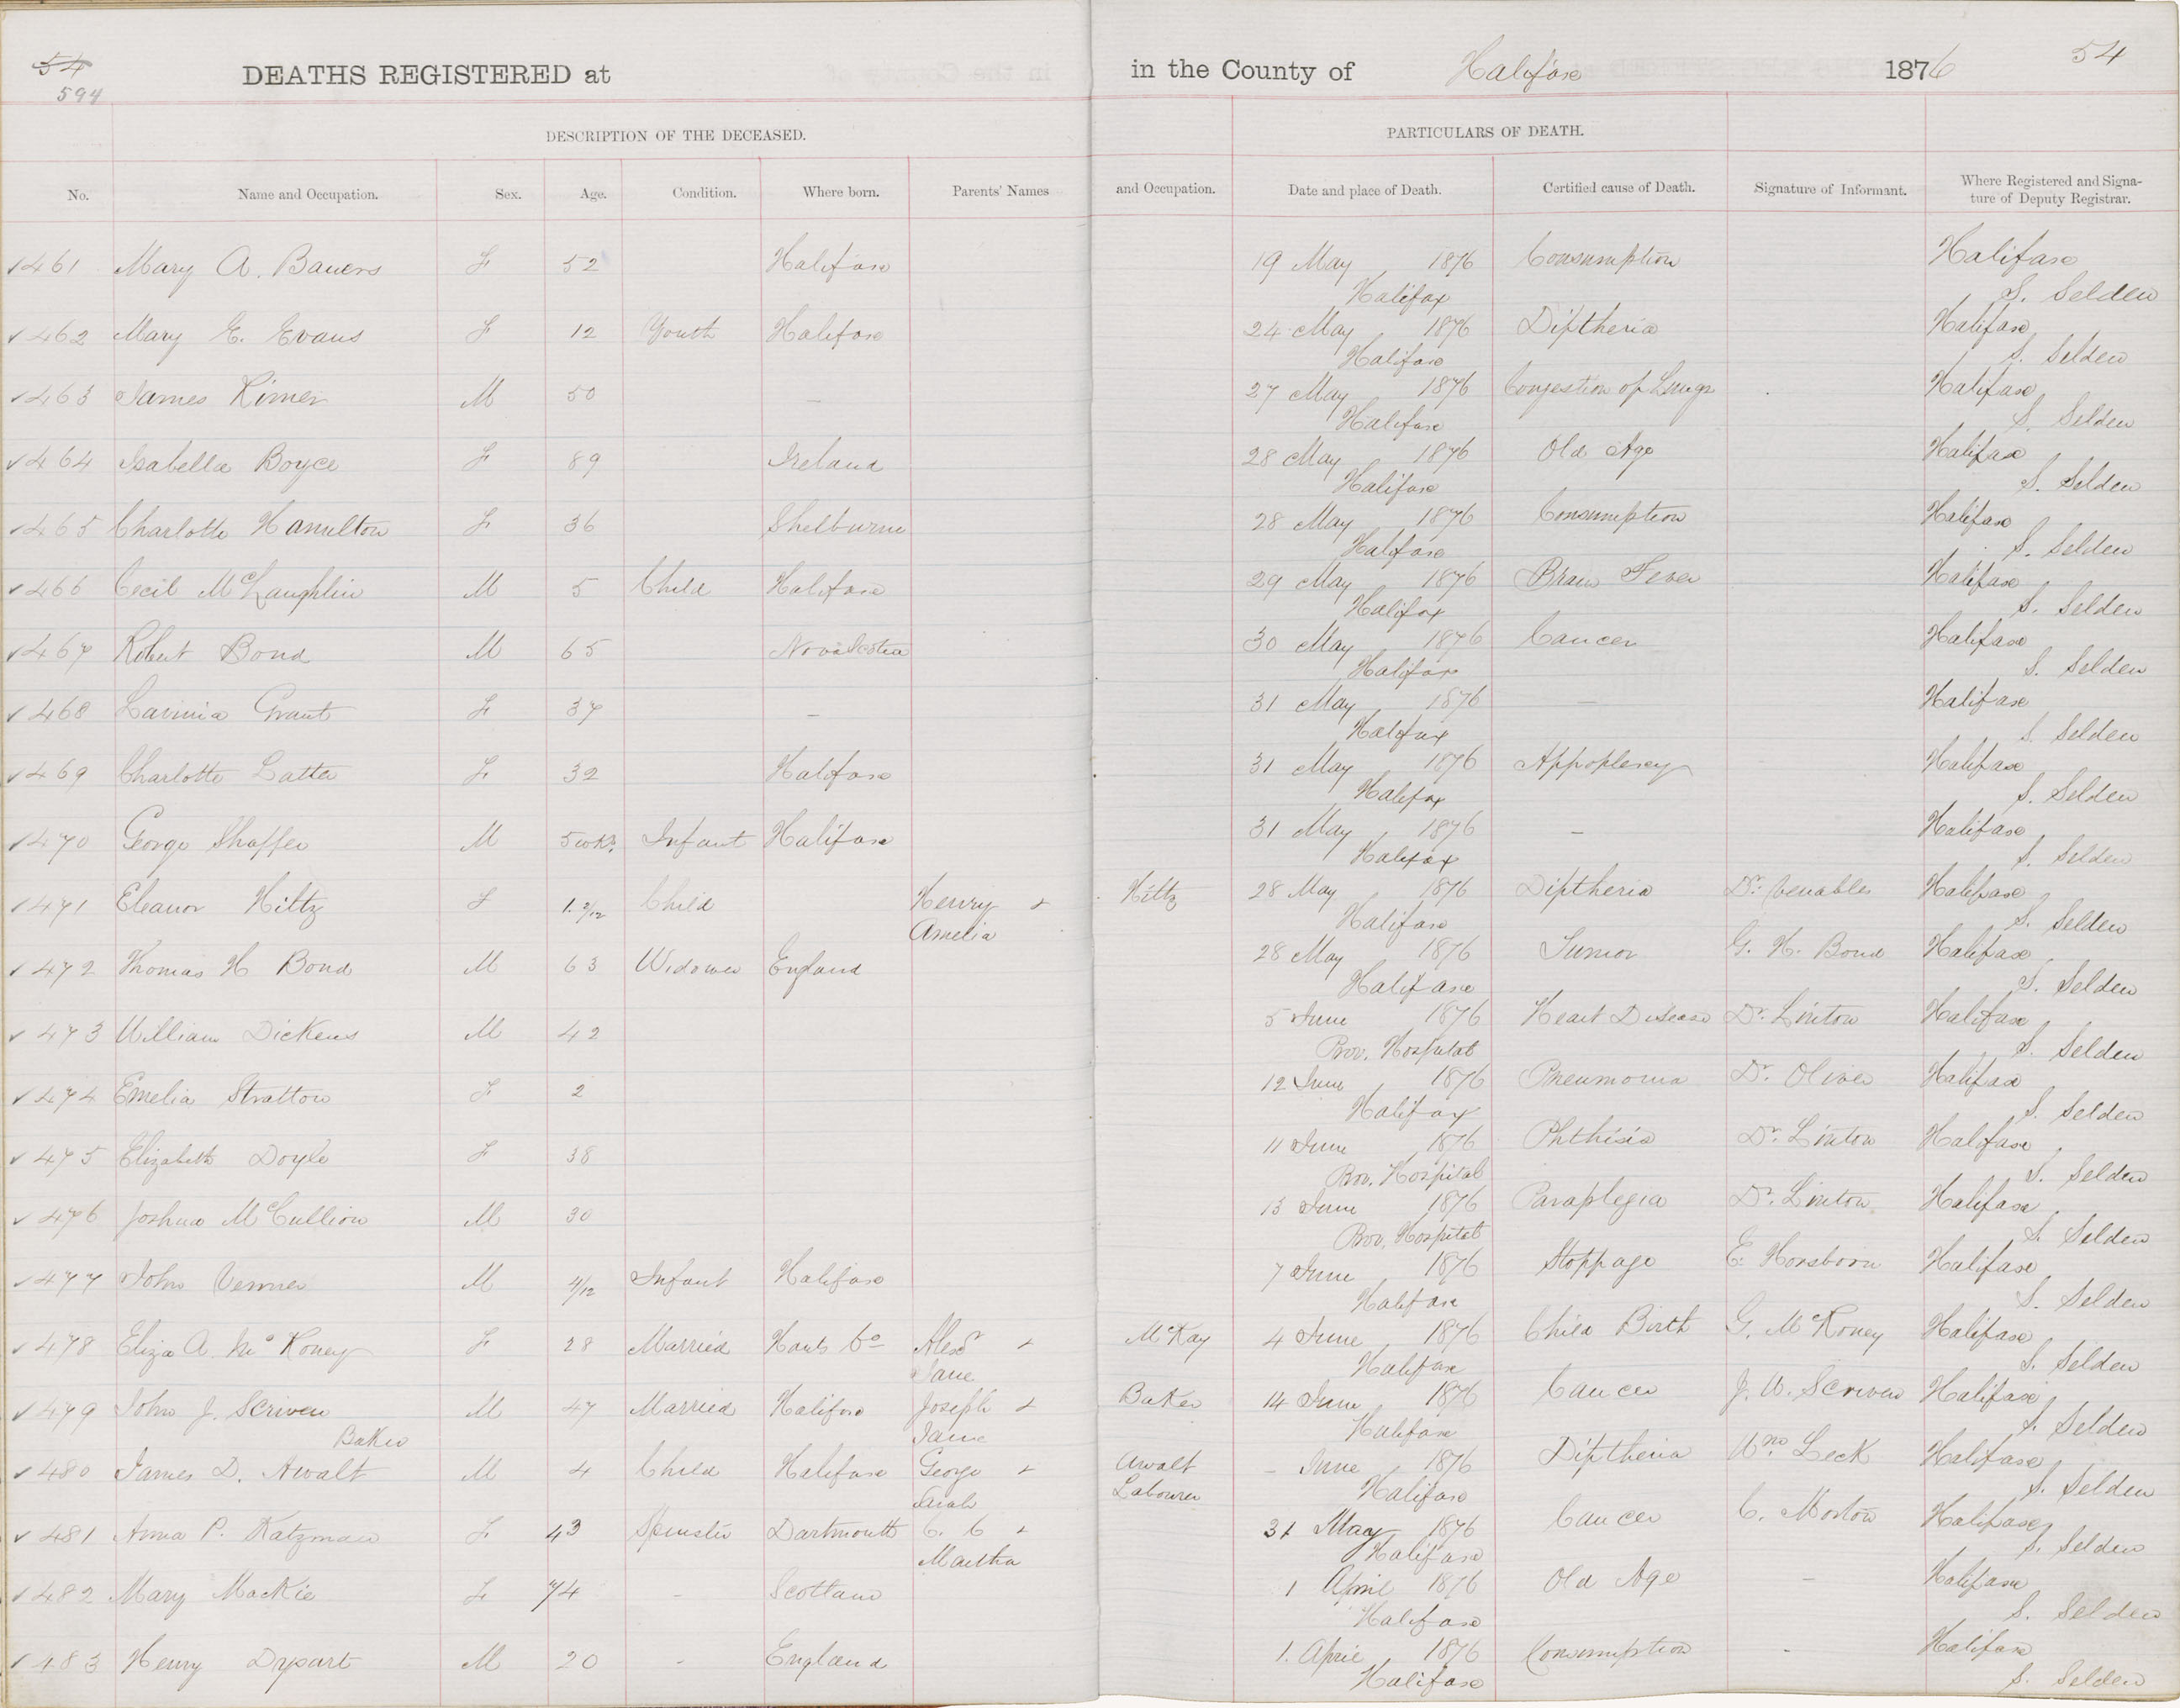 54
594
DEATHS REGISTERED at in the County of Halifax 1876 54
DESCRIPTION OF THE DECEASED. PARTICULARS OF DEATH.
No. Name and Occupation. Sex. Age. Condition. Where born. Parents' Names and Occupation. Date and place of Death. Certified cause of Death. Signature of Informant. Where Registered and Signature of Deputy Registrar.
461 Mary A. Bauers F 52 Halifax 19 May 1876 Consumption Halifax
Halifax S. Selden
462 Mary E. Evans F 12 Youth Halifax 24 May 1876 Diptheria Halifax
Halifax S. Selden
463 James Rimer M 50 — 27 May 1876 Congestion of Lungs Halifax
Halifax S. Selden
464 Isabella Boyce F 89 Ireland 28 May 1876 Old Age Halifax
Halifax S. Selden
465 Charlotte Hamilton F 36 Shelburne 28 May 1876 Consumption Halifax
Halifax S. Selden
466 Cecil McLaughlin M 5 Child Halifax 29 May 1876 Brain Fever Halifax
Halifax S. Selden
467 Robert Bond M 65 Nova Scotia 30 May 1876 Cancer Halifax
Halifax S. Selden
468 Lavinia Grant F 37 — 31 May 1876 — Halifax
Halifax S. Selden
469 Charlotte Latter F 32 Halifax 31 May 1876 Appoplexy Halifax
Halifax S. Selden
470 George Shaffer M 5 wks. Infant Halifax 31 May 1876 — Halifax
Halifax S. Selden
471 Eleanor Hiltz F 1. 2/12 Child Henry + Hiltz 28 May 1876 Diptheria Dr. Venables Halifax
Amelia Halifax S. Selden
472 Thomas H Bond M 63 Widower England 28 May 1876 Tumor G. H. Bond Halifax
Halifax S. Selden
473 William Dickens M 42 5 June 1876 Heart Disease Dr. Linton Halifax
Prov. Hospital S. Selden
474 Emelia Stratton F 2 12 June 1876 Pneumonia Dr. Oliver Halifax
Halifax S. Selden
475 Elizabeth Doyle F 38 11 June 1876 Phthisis Dr. Linton Halifax
Prov. Hospital S. Selden
476 Joshua McCullion M 30 13 June 1876 Paraplegia Dr. Linton Halifax
Prov. Hospital S. Selden
477 John Venner M /12 Infant Halifax 7 June 1876 Stoppage E. Halifax
Halifax S. Selden
478 Eliza A. McKoney F 28 Married Hants Co Alexr + McKay 4 June 1876 Child Birth G. McKoney Halifax
Jane Halifax S. Selden
479 John J. Scriven M 47 Married Halifax Joseph + Baker 14 June 1876 Cancer J. W. Scriven Halifax
Baker Jane Halifax S. Selden
480 James D. Awalt M 4 Child Halifax George + Awalt – June 1876 Diptheria Wm Leck Halifax
Sarah Labourer Halifax S. Selden
481 Anna P. Katzman F 43 Spinster Dartmouth C. C + 31 May 1876 Cancer C. Morton Halifax
Martha Halifax S. Selden
482 Mary Mackie F 74 – Scotland 1 April 1876 Old Age – Halifax
Halifax S. Selden
483 Henry Dypart M 20 – England 1. April 1876 Consumption – Halifax
Halifax S. Selden